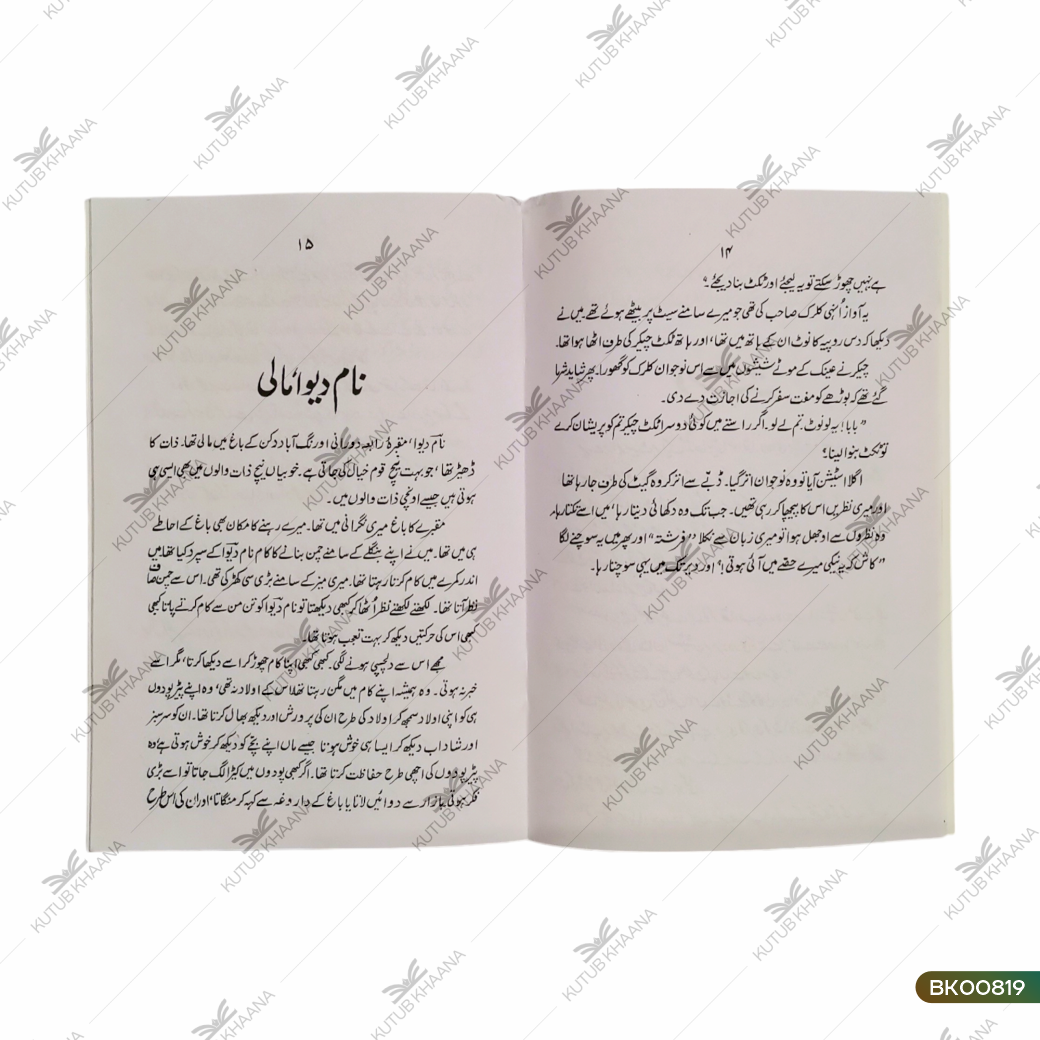 ۱۴
ہے نہیں چھوڑ سکتے تو یہ لیجئے اور ٹکٹ بنا دیجئے۔"
یہ آواز اُنہی کلرک صاحب کی تھی جو میرے سامنے سیٹ پر بیٹھے ہوئے تھے میں نے
دیکھا کہ دس روپیہ کا نوٹ ان کے ہاتھ میں تھا، اور ہاتھ ٹکٹ چیکر کی طرف اٹھا ہوا تھا۔
چیکر نے عینک کے موٹے شیشوں میں سے اس نوجوان کلرک کو گھورا۔ پھر شاید شرما
گئے تھے کہ بوڑھے کو مفت سفر کرنے کی اجازت دے دی۔
"بابا! یہ لو نوٹ تم لے لو۔ اگر راستے میں کوئی دوسرا ٹکٹ چیکر تم کو پریشان کرے
تو ٹکٹ بنوا لینا؟
اگلا اسٹیشن آیا تو وہ نوجوان اتر گیا۔ ڈبّے سے اتر کر وہ گیٹ کی طرف جا رہا تھا
اور میری نظریں اس کا پیچھا کر رہی تھیں۔ جب تک وہ دکھائی دیتا رہا، میں اسے تکتا رہا۔
وہ نظروں سے اوجھل ہوا تو میری زبان سے نکلا "فرشتہ" اور پھر میں یہ سوچنے لگا
"کاش کہ یہ نیکی میرے حصّے میں آئی ہوتی!" اور دیر تک میں یہی سوچتا رہا۔
۱۵
نام دیو، مالی
نام دیو، مقبرۂ رابعہ دورانی اورنگ آباد دکن کے باغ میں مالی تھا۔ ذات کا
ڈھیڑ تھا، جو بہت نیچ قوم خیال کی جاتی ہے۔ خوبیاں نیچ ذات والوں میں بھی ایسی ہی
ہوتی ہیں جیسے اونچی ذات والوں میں۔
مقبرے کا باغ میری نگرانی میں تھا۔ میرے رہنے کا مکان بھی باغ کے احاطے
ہی میں تھا۔ میں نے اپنے بنگلے کے سامنے چمن بنانے کا کام نام دیو کے سپرد کیا تھا میں
اندر کمرے میں کام کرتا رہتا تھا۔ میری میز کے سامنے بڑی سی کھڑکی تھی۔ اس سے چمن صاف
نظر آتا تھا۔ لکھتے لکھتے نظر اُٹھا کر کبھی دیکھتا تو نام دیو کو تن من سے کام کرتے پاتا کبھی
کبھی اس کی حرکتیں دیکھ کر بہت تعجب ہوتا تھا۔
مجھے اس سے دلچسپی ہونے لگی۔ کبھی کبھی اپنا کام چھوڑ کر اسے دیکھا کرتا، مگر اسے
خبر نہ ہوتی۔ وہ ہمیشہ اپنے کام میں مگن رہتا تھا اس کے اولاد نہ تھی، وہ اپنے پیڑ پودوں
ہی کو اپنی اولاد سمجھ کر اولاد کی طرح ان کی پرورش اور دیکھ بھال کرتا تھا۔ ان کو سرسبز
اور شاداب دیکھ کر ایسا ہی خوش ہوتا جیسے ماں اپنے بچّے کو دیکھ کر خوش ہوتی ہے، وہ
پیڑ پودوں کی اچھی طرح حفاظت کرتا تھا۔ اگر کبھی پودوں میں کیڑا لگ جاتا تو اسے بڑی
فکر ہوتی بازار سے دوائیں لاتا یا باغ کے داروغہ سے کہہ کر منگاتا، اور ان کی اس طرح
KUTUB KHAANA
BK00819